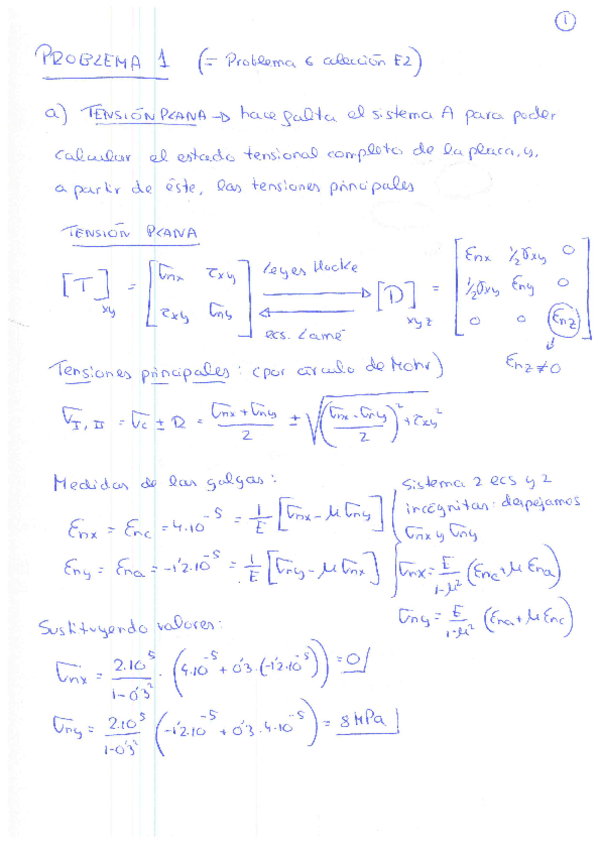 1
PROBLEMA 1 (= Problema 6 colección E2)
a) TENSIÓN PLANA → hace falta el sistema A para poder
calcular el estado tensional completo de la placa, y,
a partir de éste, las tensiones principales
TENSIÓN PLANA
[T]xy = [σnx τxy; τxy σny] Leyes Hooke ⇄ ecs. Lamé [D]xyz = [εnx ½γxy 0; ½γxy εny 0; 0 0 εnz]
εnz ≠ 0
Tensiones principales: (por círculo de Mohr)
σI,II = σc ± R = (σnx + σny)/2 ± √(((σnx - σny)/2)² + τxy²)
Medidas de las galgas:
εnx = εnc = 4·10⁻⁵ = 1/E [σnx - μ σny]
εny = εna = -1'2·10⁻⁵ = 1/E [σny - μ σnx]
Sistema 2 ecs y 2
incógnitas: despejamos
σnx y σny
σnx = E/(1-μ²) (εnc + μ εna)
σny = E/(1-μ²) (εna + μ εnc)
Sustituyendo valores:
σnx = 2·10⁵/(1-0'3²) · (4·10⁻⁵ + 0'3·(-1'2·10⁻⁵)) = 0
σny = 2·10⁵/(1-0'3²) (-1'2·10⁻⁵ + 0'3·4·10⁻⁵) = 8 MPa